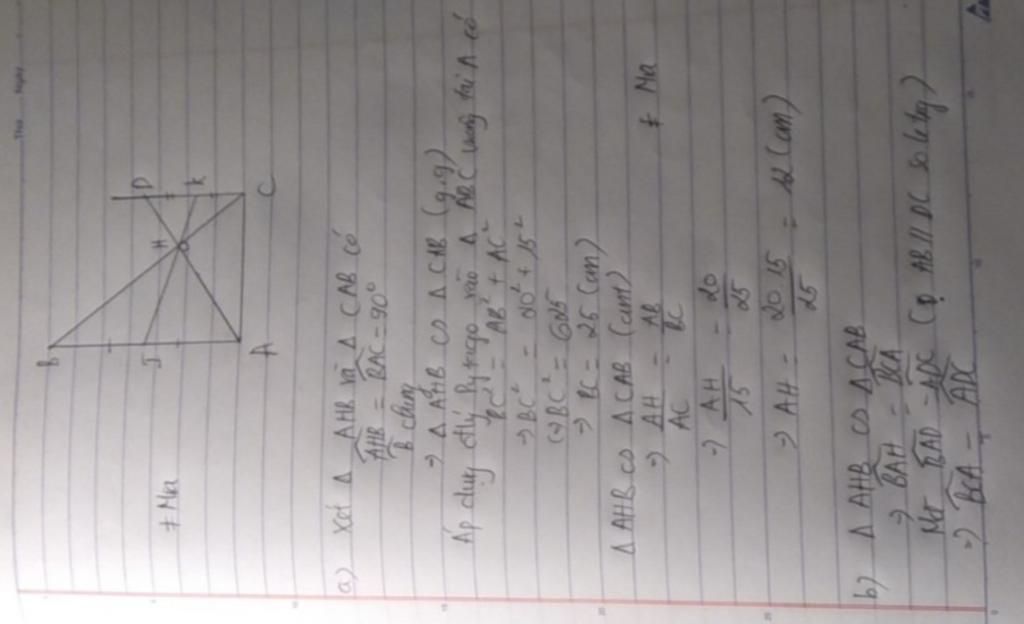 Thứ Ngày
B
J
A
H
D
K
C
≠ Na
a) Xét Δ AHB và Δ CAB có
AHB = BAC = 90°
B chung
⇒ Δ AHB ∽ Δ CAB (g.g)
Áp dụng đlý Pytago vào Δ ABC vuông tại A có
BC² = AB² + AC²
⇒ BC² = 20² + 15²
(⇒) BC² = 625
⇒ BC = 25 (cm)
Δ AHB ∽ Δ CAB (cmt)
⇒ AH/AC = AB/BC
≠ Na
⇒ AH/15 = 20/25
⇒ AH = 20.15/25 = 12 (cm)
b) Δ AHB ∽ Δ CAB
⇒ BAH = BCA
Mt BAD = ADC ( AB // DC so le tg)
⇒ BCA = ADC